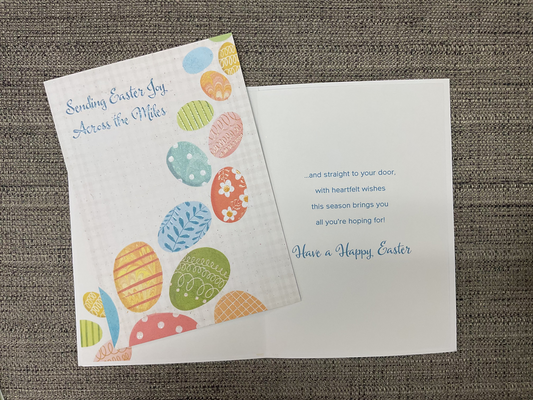 Sending Easter Joy
Across the Miles
...and straight to your door,
with heartfelt wishes
this season brings you
all you're hoping for!
Have a Happy Easter